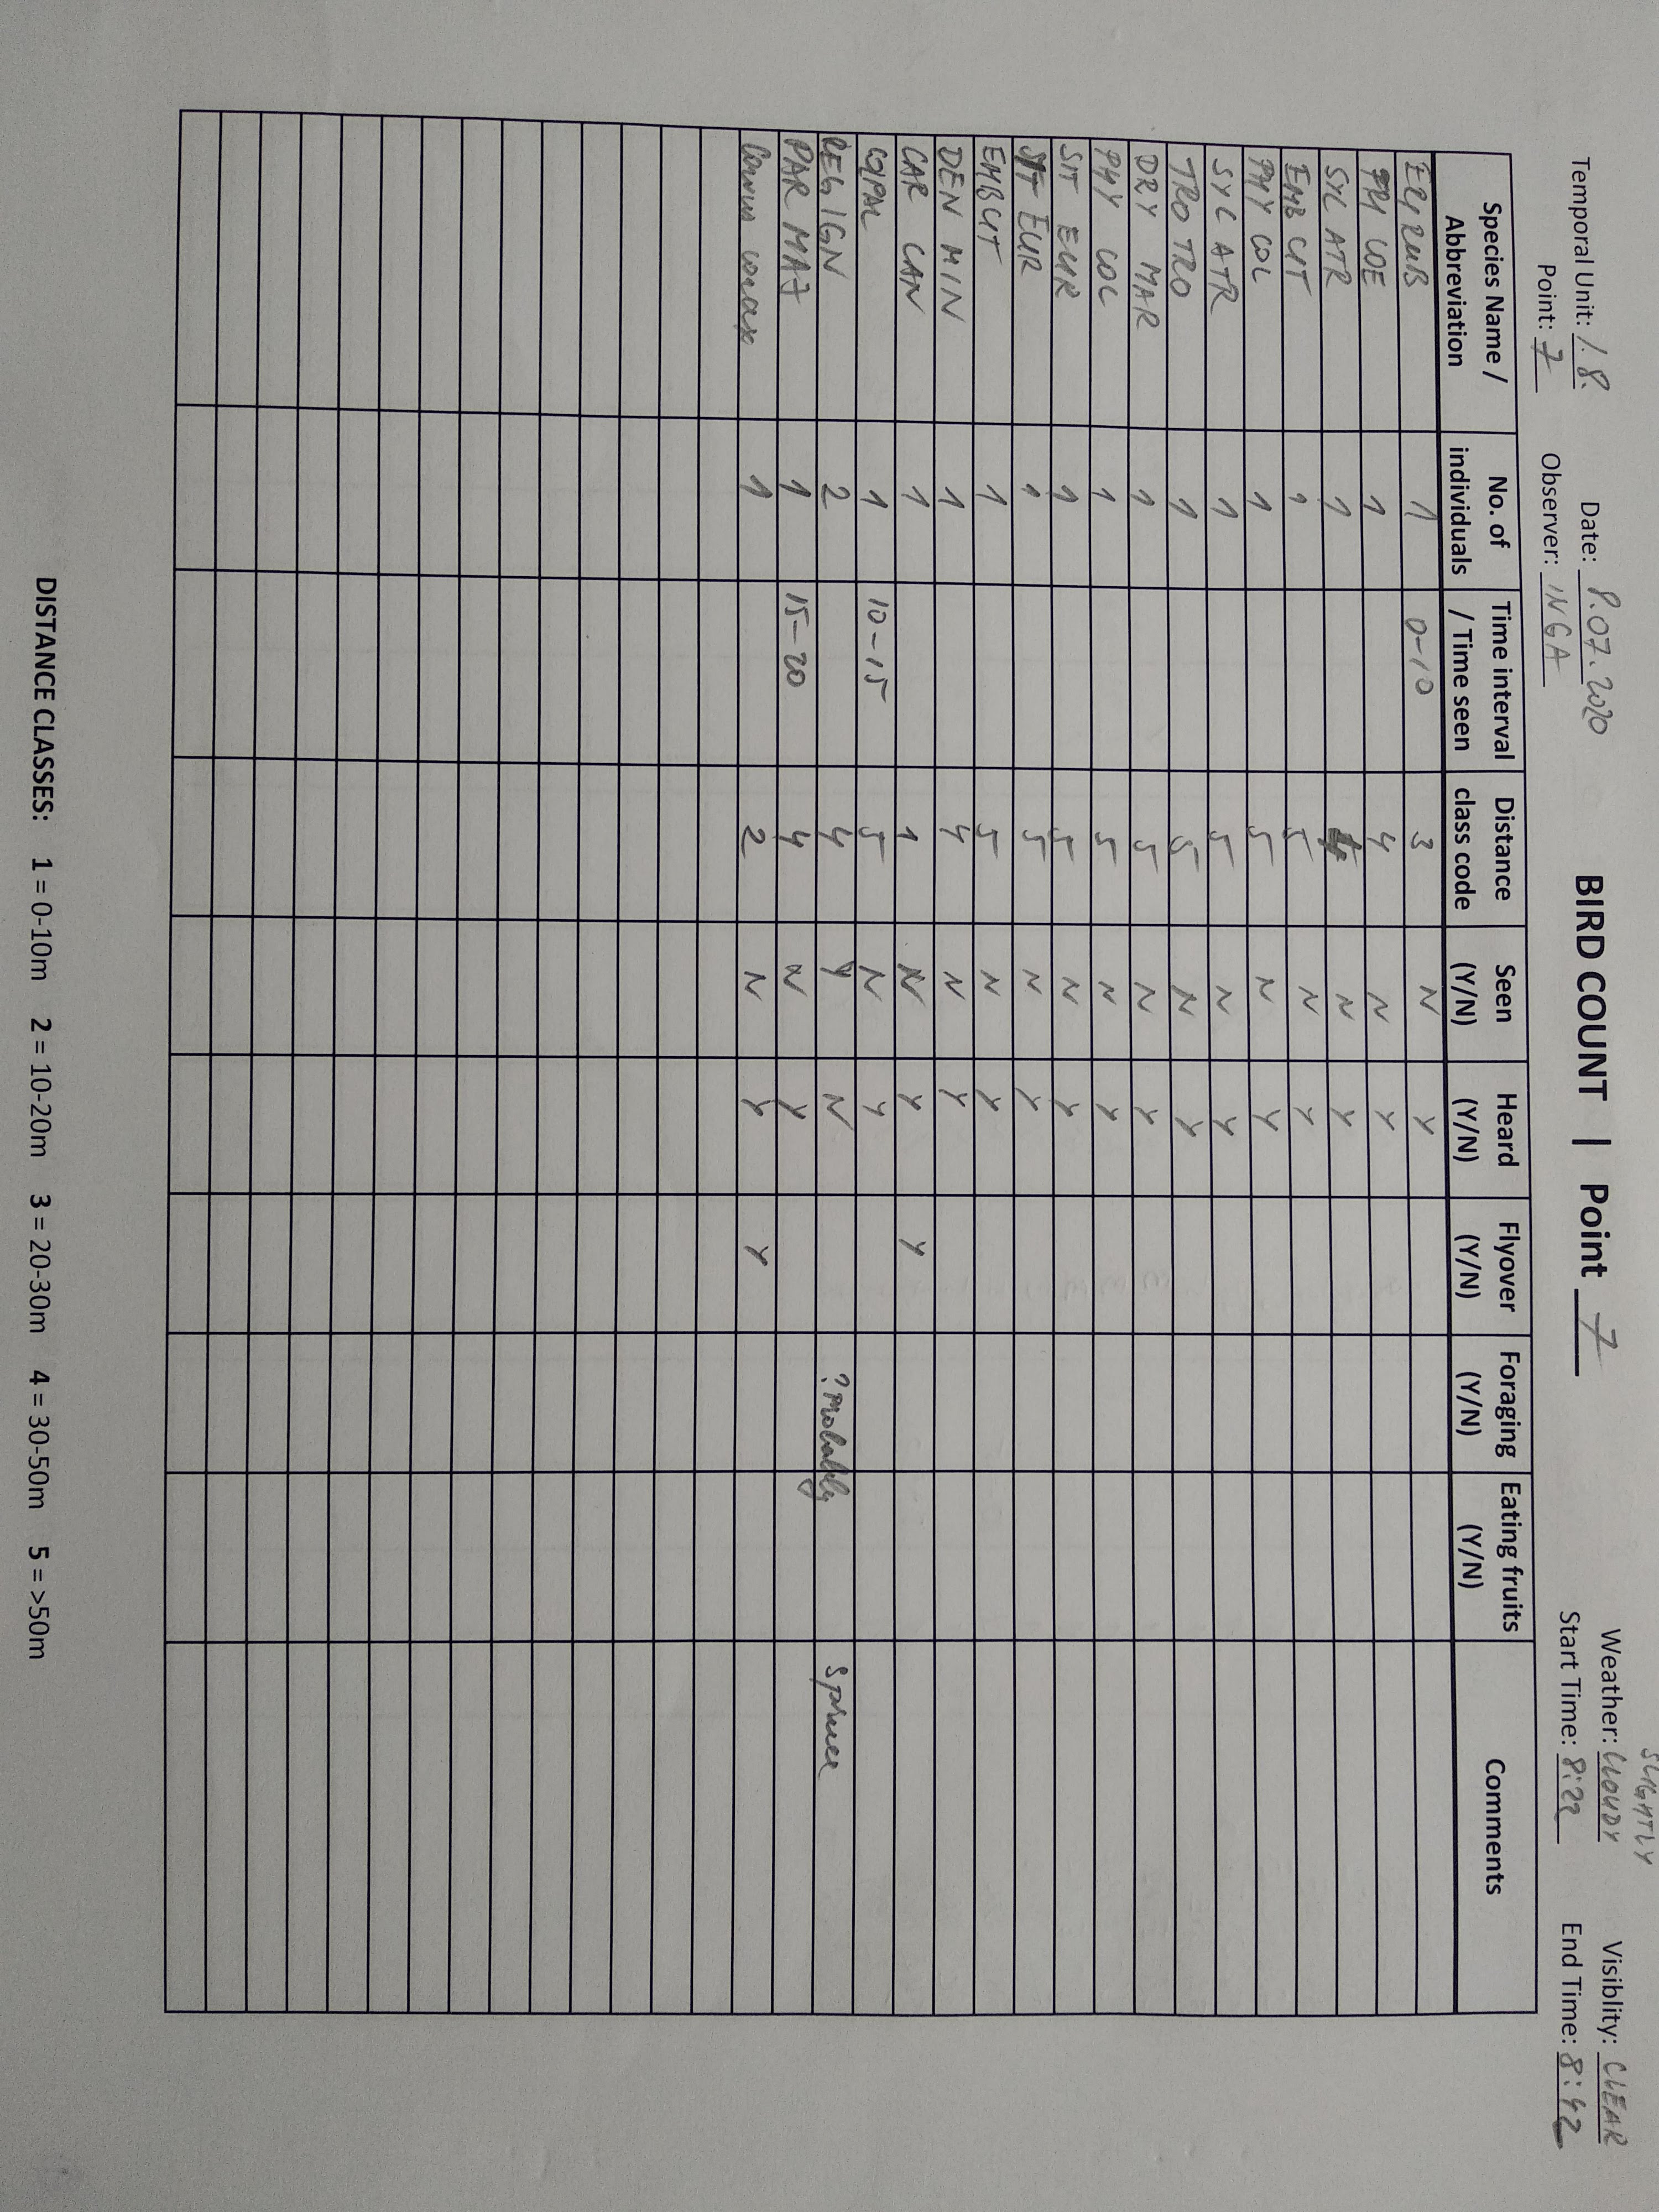 SLIGHTLY
Temporal Unit: 1.8. Date: 8.07.2020 BIRD COUNT | Point 7 Weather: CLOUDY Visiblity: CLEAR
Point: 7 Observer: INGA Start Time: 8:22 End Time: 8:42
Species Name / Abbreviation No. of individuals Time interval / Time seen Distance class code Seen (Y/N) Heard (Y/N) Flyover (Y/N) Foraging (Y/N) Eating fruits (Y/N) Comments
ERI RUB 1 0-10 3 N Y
FRI COE 1 4 N Y
SYL ATR 1 4 N Y
EMB CIT 1 5 N Y
PHY COL 1 5 N Y
SYL ATR 1 5 N Y
TRO TRO 1 5 N Y
DRY MAR 1 5 N Y
PHY COL 1 5 N Y
SIT EUR 1 5 N Y
SIT EUR 1 5 N Y
EMB CIT 1 5 N Y
DEN MIN 1 4 N Y
CAR CAN 1 1 N Y Y
COLPAL 1 10-15 5 N Y
REG IGN 2 4 Y N ? Probably spruce
PAR MAJ 1 15-20 4 N Y
Corvus corax 1 2 N Y Y
DISTANCE CLASSES: 1 = 0-10m 2 = 10-20m 3 = 20-30m 4 = 30-50m 5 = >50m